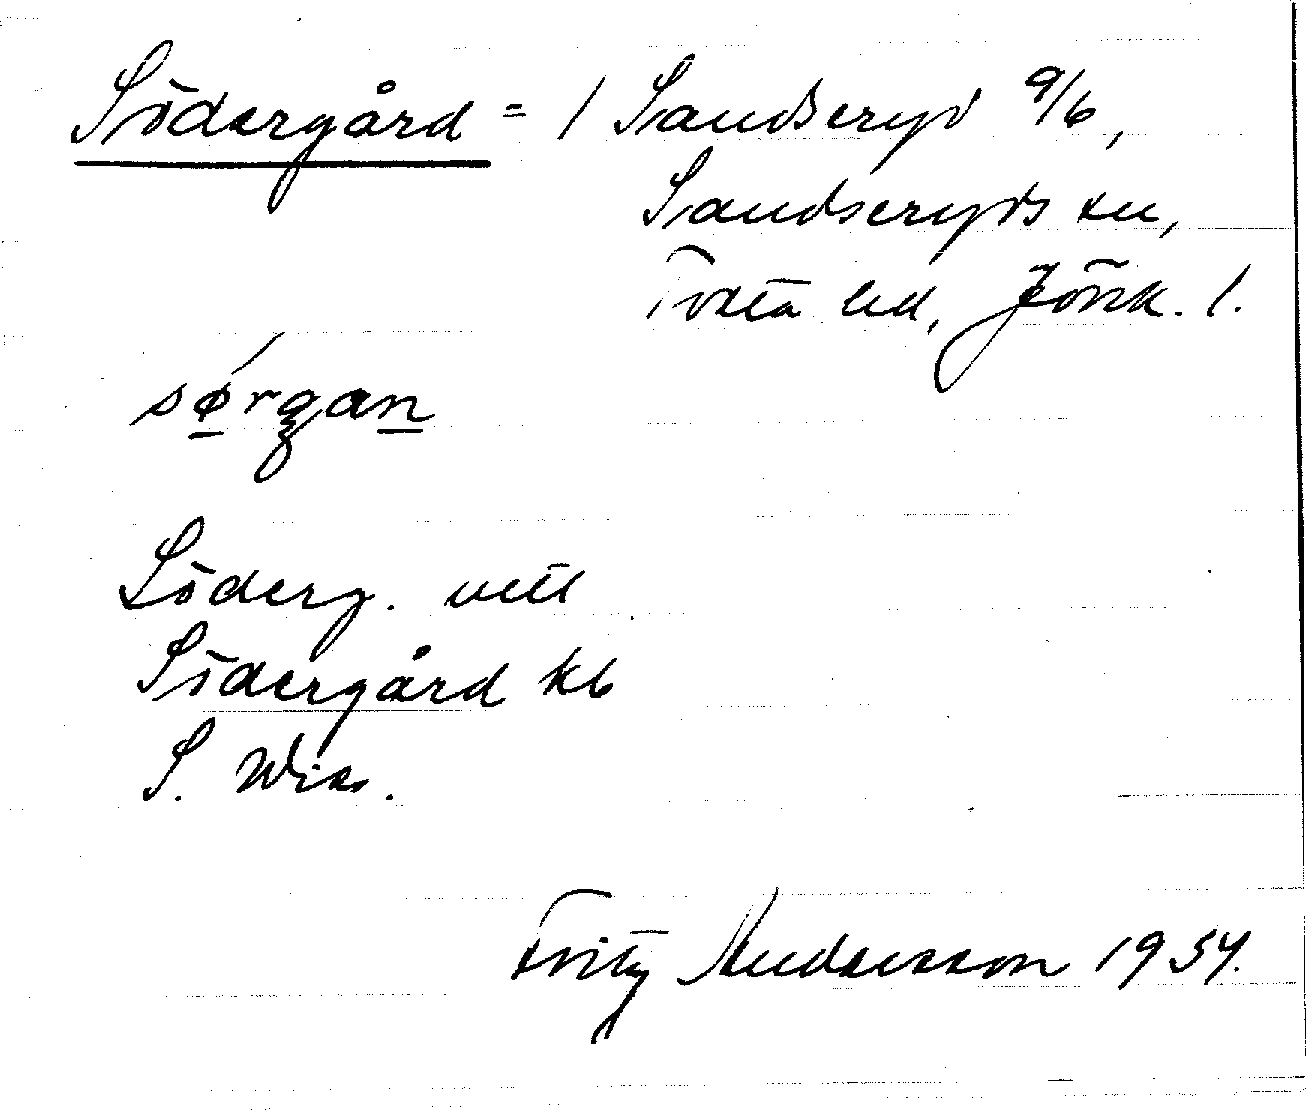 Södergård = 1 Sandseryd 9/6,
Sandseryds sn,
Tveta hd, Jönk. l.
sørgan
Söderg. vttl
Södergård kb
S. Wies.
Fritz Andersson 1934.